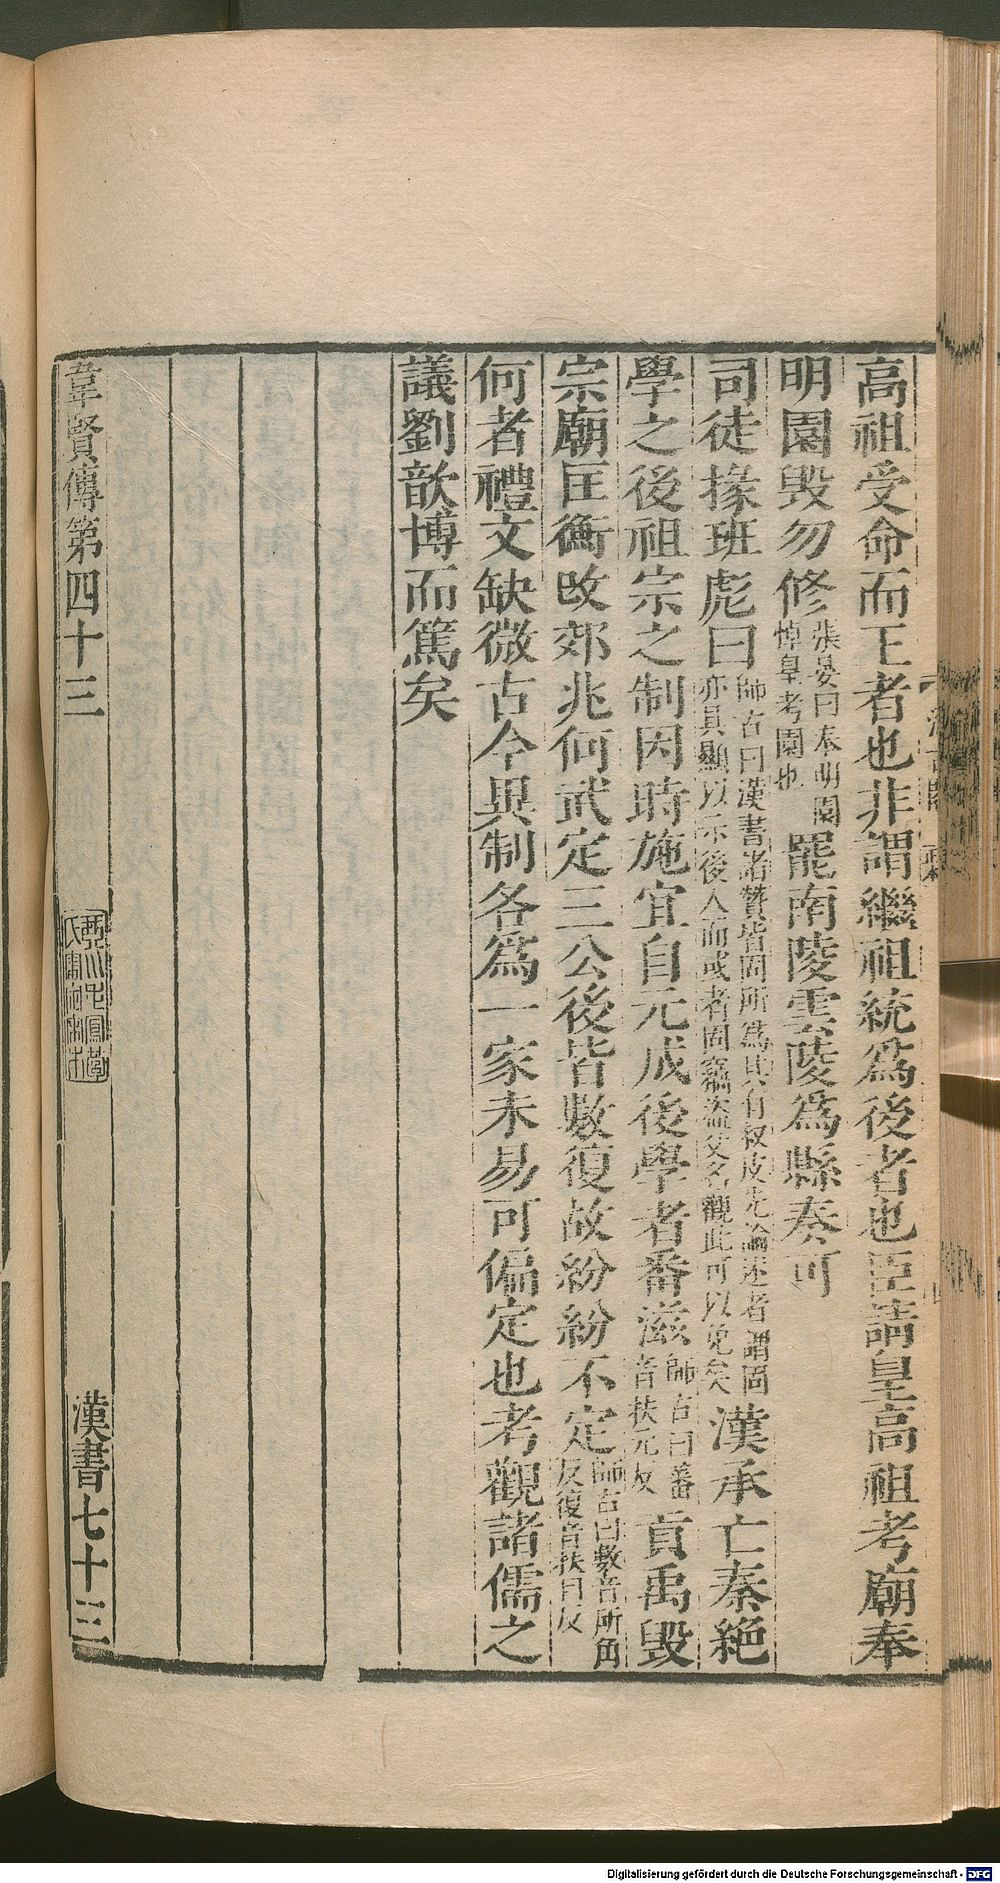 高祖受命而王者也非謂繼祖統爲後者也臣請皇高祖考廟奉
明園毁勿修張晏曰奉明園悼皇考園也罷南陵雲陵爲縣奏可
司徒掾班彪曰師古曰漢書諸贊皆固所爲其有叔皮先論述者謂固亦具顯以示後人而或者固竊盜父名觀此可以免矣漢承亡秦絶
學之後祖宗之制因時施宜自元成後學者番滋師古曰蕃音扶元反貢禹毁
宗廟匡衡改郊兆何武定三公後皆數復故紛紛不定師古曰數音所角反復音扶目反
何者禮文缺微古今異制各爲一家未易可偏定也考觀諸儒之
議劉歆博而篤矣
韋賢傳第四十三
漢書七十三
Digitalisierung gefördert durch die Deutsche Forschungsgemeinschaft - DFG